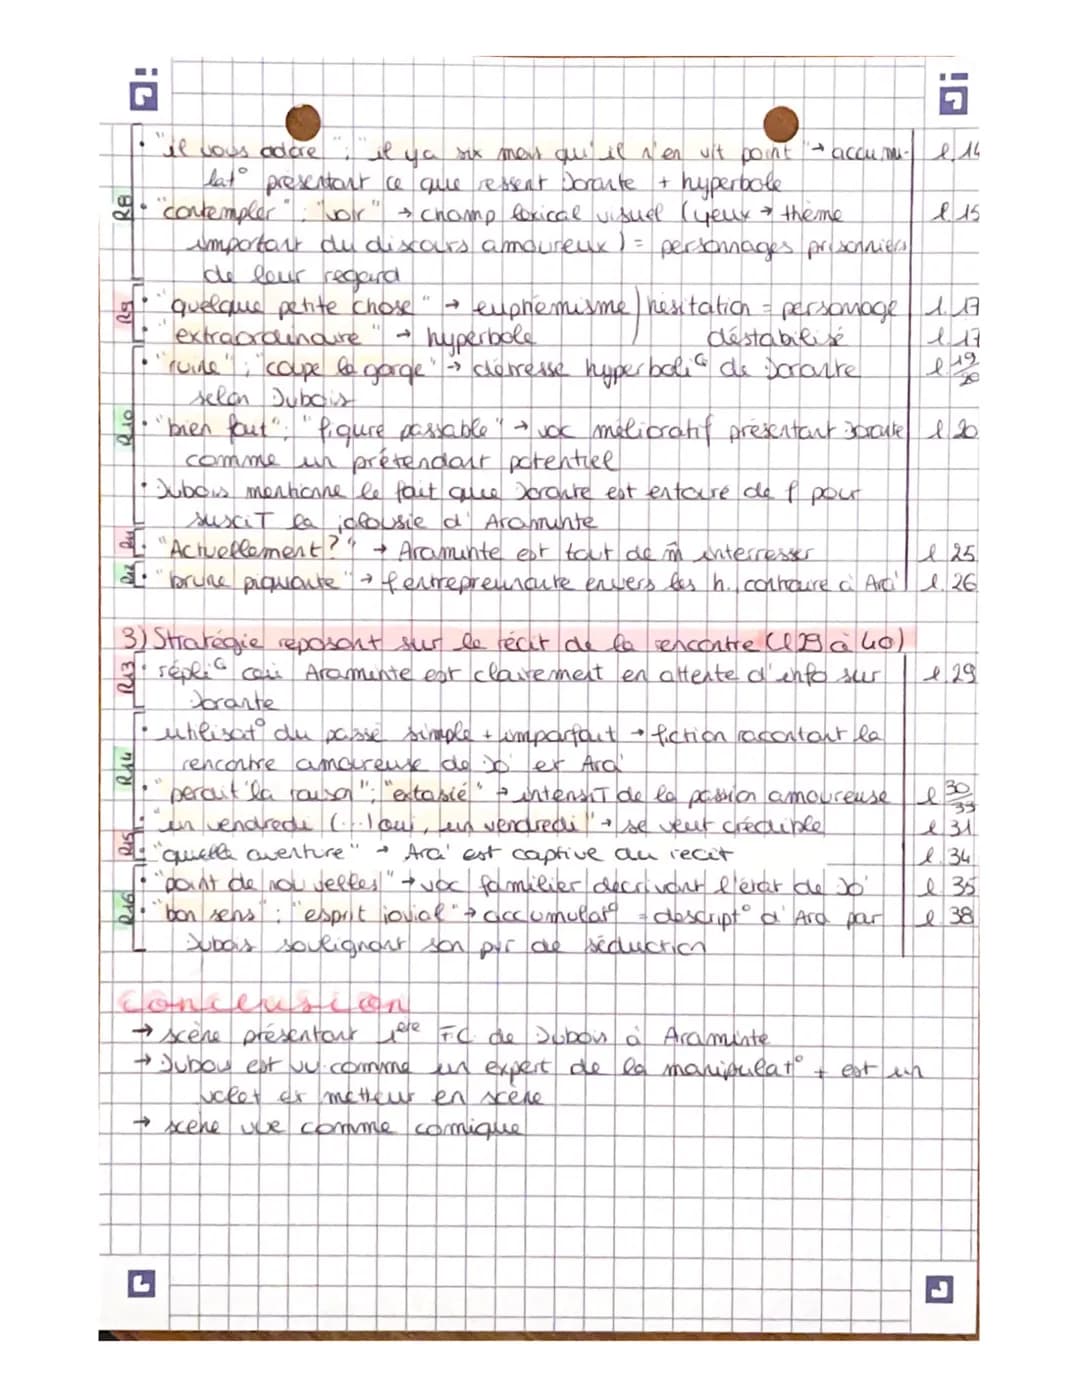 R8 • "il vous adore" ; "il y a six mois qu'il n'en vit point" → accumu- l 14
lat° présentant ce que ressent Dorante + hyperbole
• "contempler" ; "voir" → champ lexical visuel (yeux → thème l 15
important du discours amoureux) = personnages prisonniers
de leur regard
R9 • "quelque petite chose" → euphémisme / hésitation = personnage l. 17
• "extraordinaire" → hyperbole / déstabilisé l 17
R10 • "ruine" ; "coupe la gorge" → détresse hyperboliq de Dorante l 19/20
selon Dubois
• "bien fait" ; "figure passable" → voc mélioratif présentant Dorante l 20
comme un prétendant potentiel
• Dubois mentionne le fait que Dorante est entouré de f pour
susciT la jalousie d'Araminte
R11 • "Actuellement ?" → Araminte est tout de m̂ interresser l 25
R12 • "brune piquante" → f entreprenante envers les h., contraire à Ara' l. 26
3) Stratégie reposant sur le récit de la rencontre (l 29 à 40)
R13 • répliq où Araminte est clairement en attente d'info sur l 29
Dorante
R14 • utilisat° du passé simple + imparfait → fiction racontant la
rencontre amoureuse de Do' et Ara'
• "perdit la raison" ; "extasié" → intensiT de la passion amoureuse l 30/33
• "un vendredi (...) oui, un vendredi" → se veut crédible l 31
R15 • "quelle aventure" → Ara' est captive au récit l. 34
R16 • "point de nouvelles" → voc familier décrivant l'état de Do' l 35
• "bon sens" ; "esprit jovial" → accumulat° = descript° d'Ara par l 38
Dubois soulignant son pvr de séduction
Conclusion
→ scène présentant 1ère F.C. de Dubois à Araminte
→ Dubois est vu comme un expert de la manipulat° + est un
valet et metteur en scène
→ scène vue comme comique